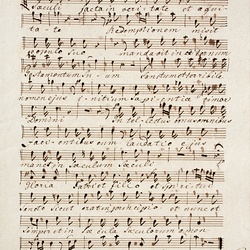 Sæculi facta in veritate et aequi
tate Redemptionem misit
populo suo mandavit in aeternum
testamentum suum Sanctum et terribile
nomen ejus initium sapientiæ timor
Domini Intellectus omnibus
facientibus eum laudatio ejus
manet in sæculum Sæculi
Gloria Patri et filio et spiritui
Sancto sicut erat in principio et nunc et
Semper et in sæcula sæculorum amen